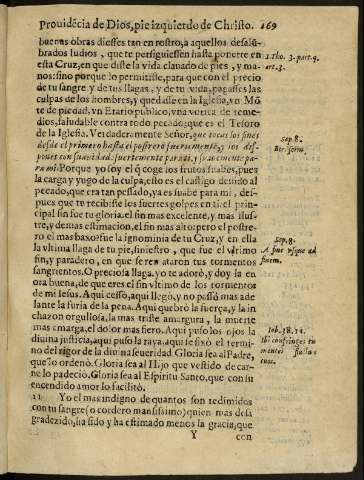 Prouidẽcia de Dios, pie izquierdo de Christo. 169
buenas obras diesses tan en rostro, a aquellos desalũ-
brados Iudios, que te persiguiessen hasta ponerte en
esta Cruz, en que diste la vida clauado de pies, y ma-
nos: sino porque lo permitiste, para que con el precio
de tu sangre, y de tus llagas, y de tu vida, pagasses las
culpas de los hombres, y quedasse en la Iglesia, vn Mõ
te de piedad, vn Erario publico, vna botica de reme-
dios, saludable contra todo pecado: que es el Tesoro
de la Iglesia. Verdaderamente Señor, que tocas los fines
desde el primero hasta el postrero fuertemente, y los dis-
pones con suauidad: fuertemente para ti, y suauemente pa-
ra mi. Porque yo soy el q̃ coge los frutos suabes, pues
la carga y yugo de la culpa, esto es el castigo deuido al
pecado, que era tan pessado, ya es suabe para mi, des-
pues que te recibiste los fuertes golpes en ti: el prin-
cipal fin fue tu gloria. el fin mas excelente, y mas illus-
tre, y de mas estimacion, el fin mas alto: pero el postre-
ro el mas baxo fue la ignominia de tu Cruz, y en ella
la vltima llaga de tu pie, siniestro, que fue el vltimo
fin, y paradero, en que se remataron tus tormentos
sangrientos. O preciosa llaga. yo te adoro, y doy la en
ora buena, de que eres el fin vltimo de los tormentos
de mi Iesus. Aqui cessò, aqui llegò, y no passò mas ade
lante la furia de la pena. Aqui quebrò la fuerça, y la in
chazon orgullosa, la mas triste amargura, la muerte
mas amarga, el dolor mas fiero. Aqui puso los ojos la
diuina justicia, aqui puso la raya, aqui se fixò el termi-
no del rigor de la diuina seueridad. Gloria sea al Padre,
que lo ordenò. Gloria sea al Hijo que vestido de car-
ne lo padeciò. Gloria sea al Espiritu Santo, que con su
encendido amor lo facilitò.
11 Yo el mas indigno de quantos son redimidos
con tu sangre (o cordero mansissimo) quien mas desa
gradezido, ha sido y ha estimado menos la gracia, que
Y con
I. Tho. 3. part. q.
art. 3.
Sap. 8.
Sap. 8.
A fine vsque ad
finem.
Iob. 38. 11.
Ibi confringes tu
mentes fluctus
tuos.